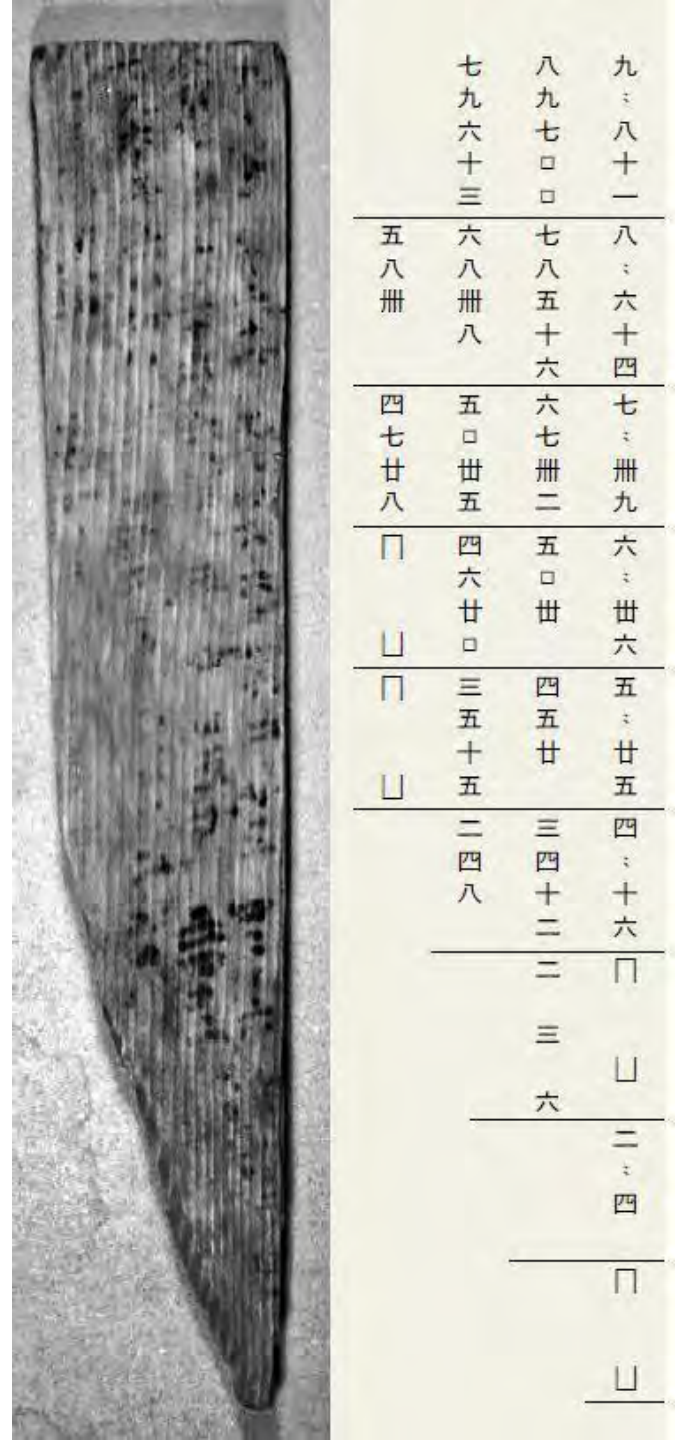 九〻八十一
八九七□□
七九六十三
八〻六十四
七八五十六
六八卌八
五八卌
七〻卌九
六七卌二
五□丗五
四七廿八
六〻丗六
五□丗
四六廿□
[ ]
五〻廿五
四五廿
三五十五
[ ]
四〻十六
三四十二
二四八
[ ]
二三六
二〻四
[ ]